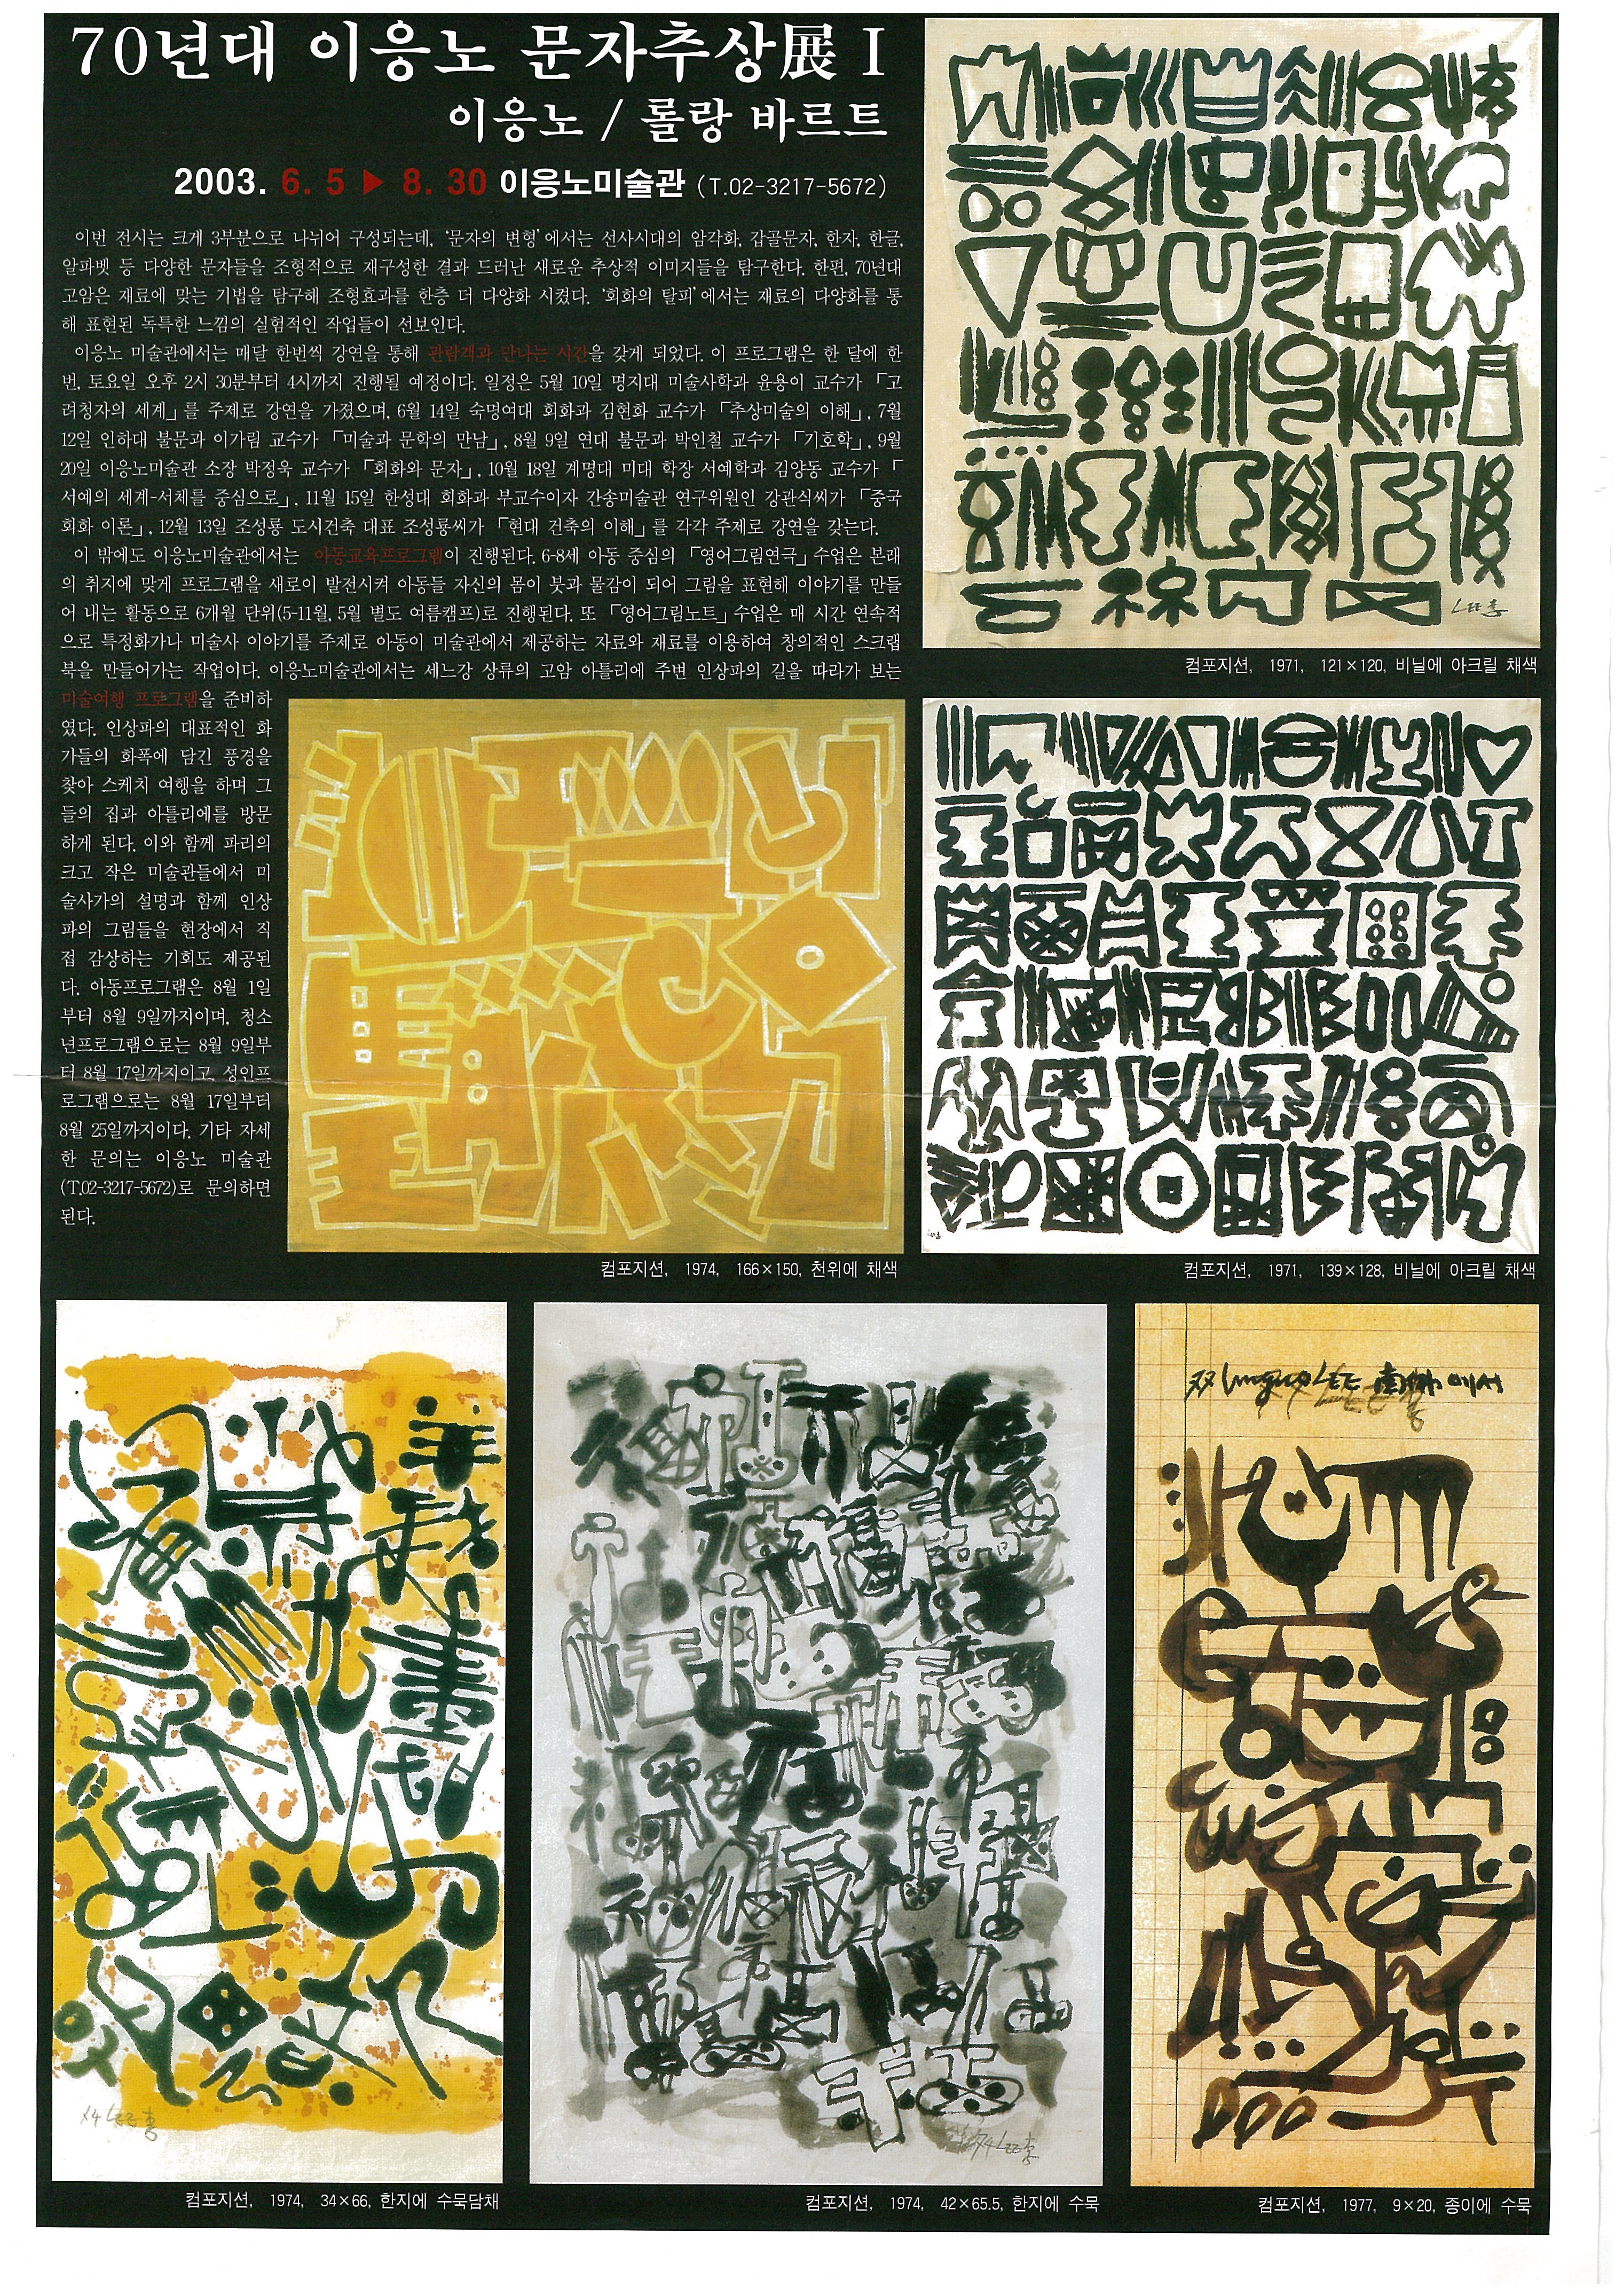 70년대 이응노 문자추상展 I
이응노 / 롤랑 바르트
2003. 6. 5 ▶ 8. 30 이응노미술관 (T.02-3217-5672)
이번 전시는 크게 3부분으로 나뉘어 구성되는데, ‘문자의 변형’에서는 선사시대의 암각화, 갑골문자, 한자, 한글,
알파벳 등 다양한 문자들을 조형적으로 재구성한 결과 드러난 새로운 추상적 이미지들을 탐구한다. 한편, 70년대
고암은 재료에 맞는 기법을 탐구해 조형효과를 한층 더 다양화 시켰다. ‘회화의 탈피’에서는 재료의 다양화를 통
해 표현된 독특한 느낌의 실험적인 작업들이 선보인다.
이응노 미술관에서는 매달 한번씩 강연을 통해 관람객과 만나는 시간을 갖게 되었다. 이 프로그램은 한 달에 한
번, 토요일 오후 2시 30분부터 4시까지 진행될 예정이다. 일정은 5월 10일 명지대 미술사학과 윤용이 교수가 「고
려청자의 세계」를 주제로 강연을 가졌으며, 6월 14일 숙명여대 회화과 김현화 교수가 「추상미술의 이해」, 7월
12일 인하대 불문과 이가림 교수가 「미술과 문학의 만남」, 8월 9일 연대 불문과 박인철 교수가 「기호학」, 9월
20일 이응노미술관 소장 박정욱 교수가 「회화와 문자」, 10월 18일 계명대 미대 학장 서예학과 김양동 교수가 「
서예의 세계-서체를 중심으로」, 11월 15일 한성대 회화과 부교수이자 간송미술관 연구위원인 강관식씨가 「중국
회화 이론」, 12월 13일 조성룡 도시건축 대표 조성룡씨가 「현대 건축의 이해」를 각각 주제로 강연을 갖는다.
이 밖에도 이응노미술관에서는 아동교육프로그램이 진행된다. 6-8세 아동 중심의 「영어그림연극」 수업은 본래
의 취지에 맞게 프로그램을 새로이 발전시켜 아동들 자신의 몸이 붓과 물감이 되어 그림을 표현해 이야기를 만들
어 내는 활동으로 6개월 단위(5-11월, 5월 별도 여름캠프)로 진행된다. 또 「영어그림노트」 수업은 매 시간 연속적
으로 특정화가나 미술사 이야기를 주제로 아동이 미술관에서 제공하는 자료와 재료를 이용하여 창의적인 스크랩
북을 만들어가는 작업이다. 이응노미술관에서는 세느강 상류의 고암 아틀리에 주변 인상파의 길을 따라가 보는
미술여행 프로그램을 준비하
였다. 인상파의 대표적인 화
가들의 화폭에 담긴 풍경을
찾아 스케치 여행을 하며 그
들의 집과 아틀리에를 방문
하게 된다. 이와 함께 파리의
크고 작은 미술관들에서 미
술사가의 설명과 함께 인상
파의 그림들을 현장에서 직
접 감상하는 기회도 제공된
다. 아동프로그램은 8월 1일
부터 8월 9일까지이며, 청소
년프로그램으로는 8월 9일부
터 8월 17일까지이고, 성인프
로그램으로는 8월 17일부터
8월 25일까지이다. 기타 자세
한 문의는 이응노 미술관
(T.02-3217-5672)로 문의하면
된다.
컴포지션, 1971, 121×120, 비닐에 아크릴 채색
컴포지션, 1974, 166×150, 천위에 채색
컴포지션, 1971, 139×128, 비닐에 아크릴 채색
컴포지션, 1974, 34×66, 한지에 수묵담채
컴포지션, 1974, 42×65.5, 한지에 수묵
컴포지션, 1977, 9×20, 종이에 수묵